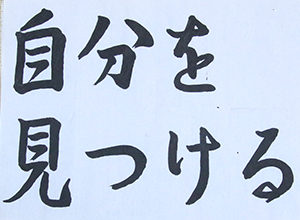 自分を
見つける